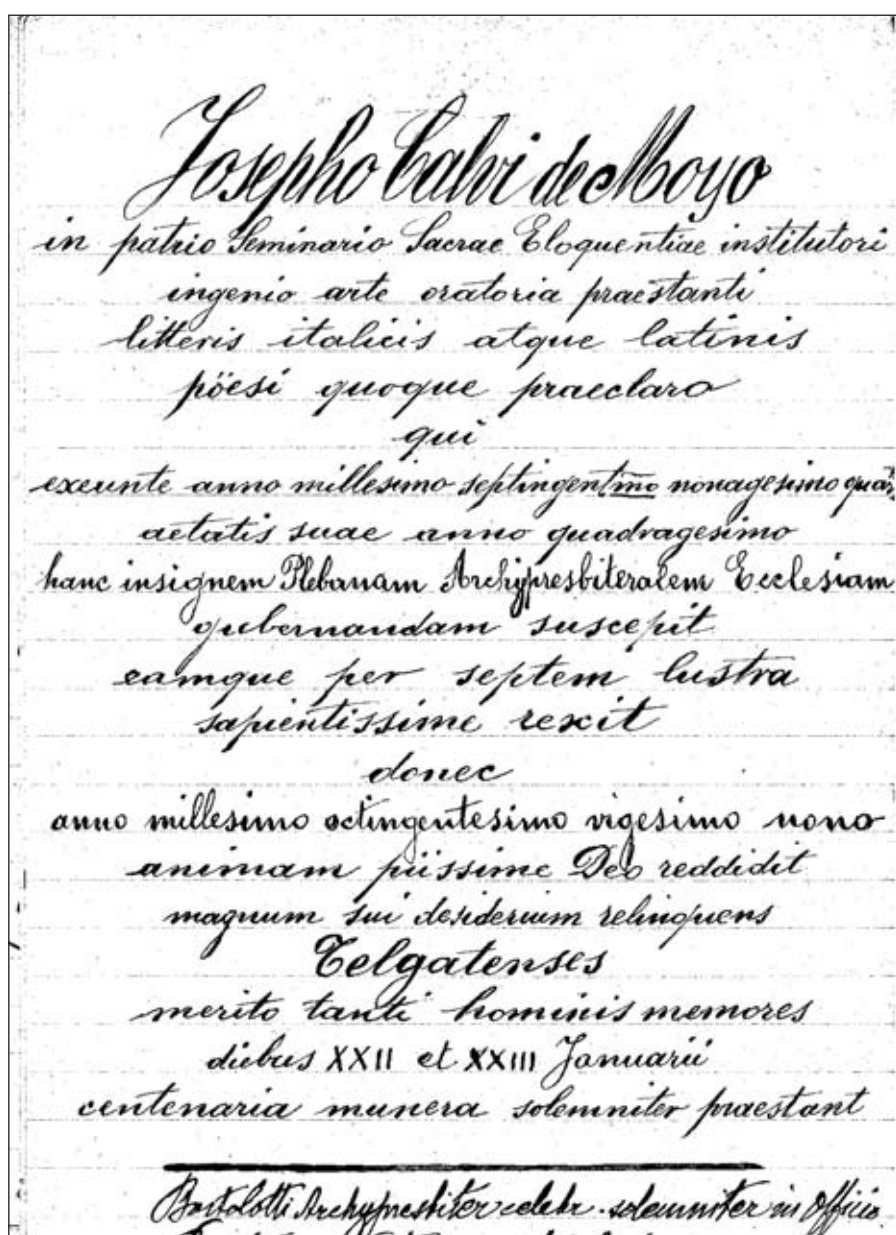 Josepho Calvi de Moyo
in patrio Seminario Sacrae Eloquentiae institutori
ingenio arte oratoria praestanti
litteris italicis atque latinis
pöesi quoque praeclaro
qui
exeunte anno millesimo septingentmo nonagesimo
aetatis suae anno quadragesimo
hanc insignem Plebanam Archypresbiteralem Ecclesiam
gubernandam suscepit
eamque per septem lustra
sapientissime rexit
donec
anno millesimo octingentesimo vigesimo nono
animam piissime Deo reddidit
magnum sui desiderium relinquens
Telgatenses
merito tanti hominis memores
diebus XXII et XXIII Januarii
centenaria munera solemniter praestant
Bortolotti Archypresbiter celebr. solemniter in Officio